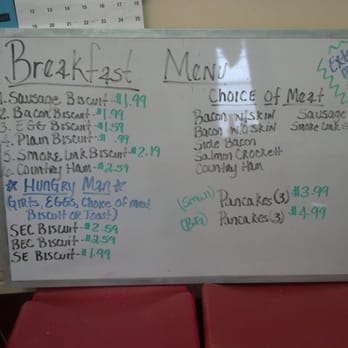 Breakfast Menu
1. Sausage Biscuit-$1.99
2. Bacon Biscuit-$1.99
3. EGG Biscuit-$1.59
4. Plain Biscuit-.99
5. Smoke Link Biscuit-$2.19
6. Country Ham-$2.59
★ HUNGRY MAN ★
GRITS, EGGS, Choice of meat
Biscuit or Toast)
SEC Biscuit-$2.59
BEC Biscuit-$2.59
SE Biscuit-$1.99
CHOICE of Meat
Bacon W/SKIN Sausage
Bacon W.O SKIN Smoke Link
Side Bacon
Salmon CROCKETT
Country Ham
(Small) Pancakes(3) $3.99
(BIG) Pancakes(3) $4.99
12 13 14
19 20 21